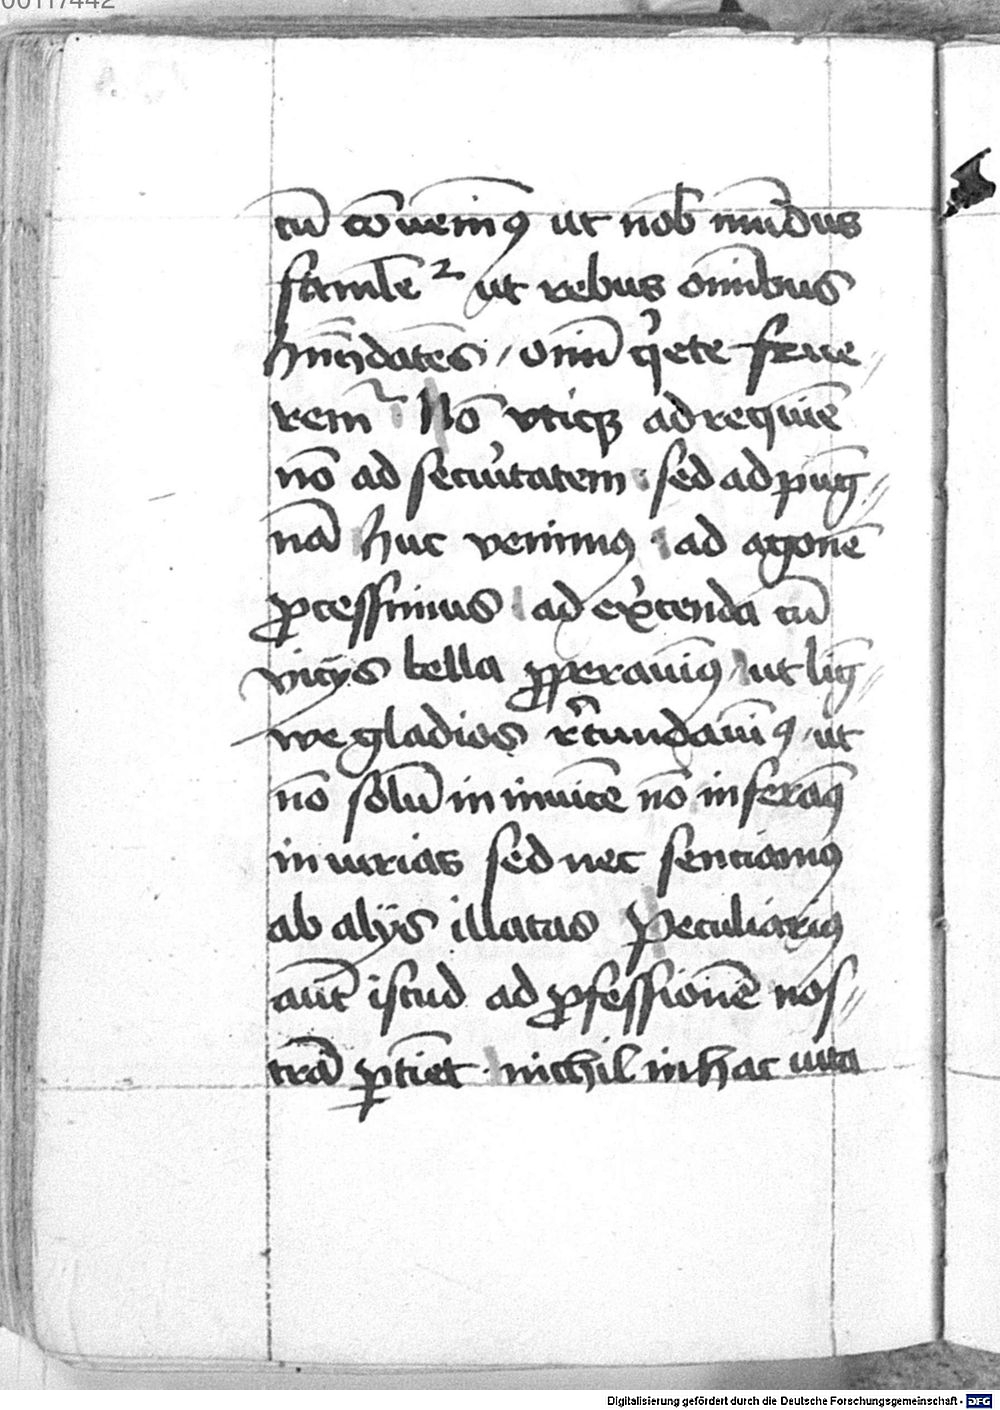 00117442
tū cōuenimꝯ ut nob̄ mūdus
famulet᷑ ut rebus om̄ibus
hūndātes / om̄i q̇ete frue
rem᷑ Nō vticꝫ ad requiē
nō ad secu̇itatem sed ad puḡ
nā huc venimus ad agonē
ꝓcessimus ad ex̓cenda cū
vicijs bella ꝓperauimꝯ ut liḡ
we gladios r̓tundaui̅ꝯ ut
nō solū in inuicē nō inferāꝯ
iniurias sed nec senciamꝯ
ab alijs illatas Peculiariꝯ
aut̄ istud ad ꝓfessionē nos
trā ꝑtīet nichil in hac uita
Digitalisierung gefördert durch die Deutsche Forschungsgemeinschaft - DFG